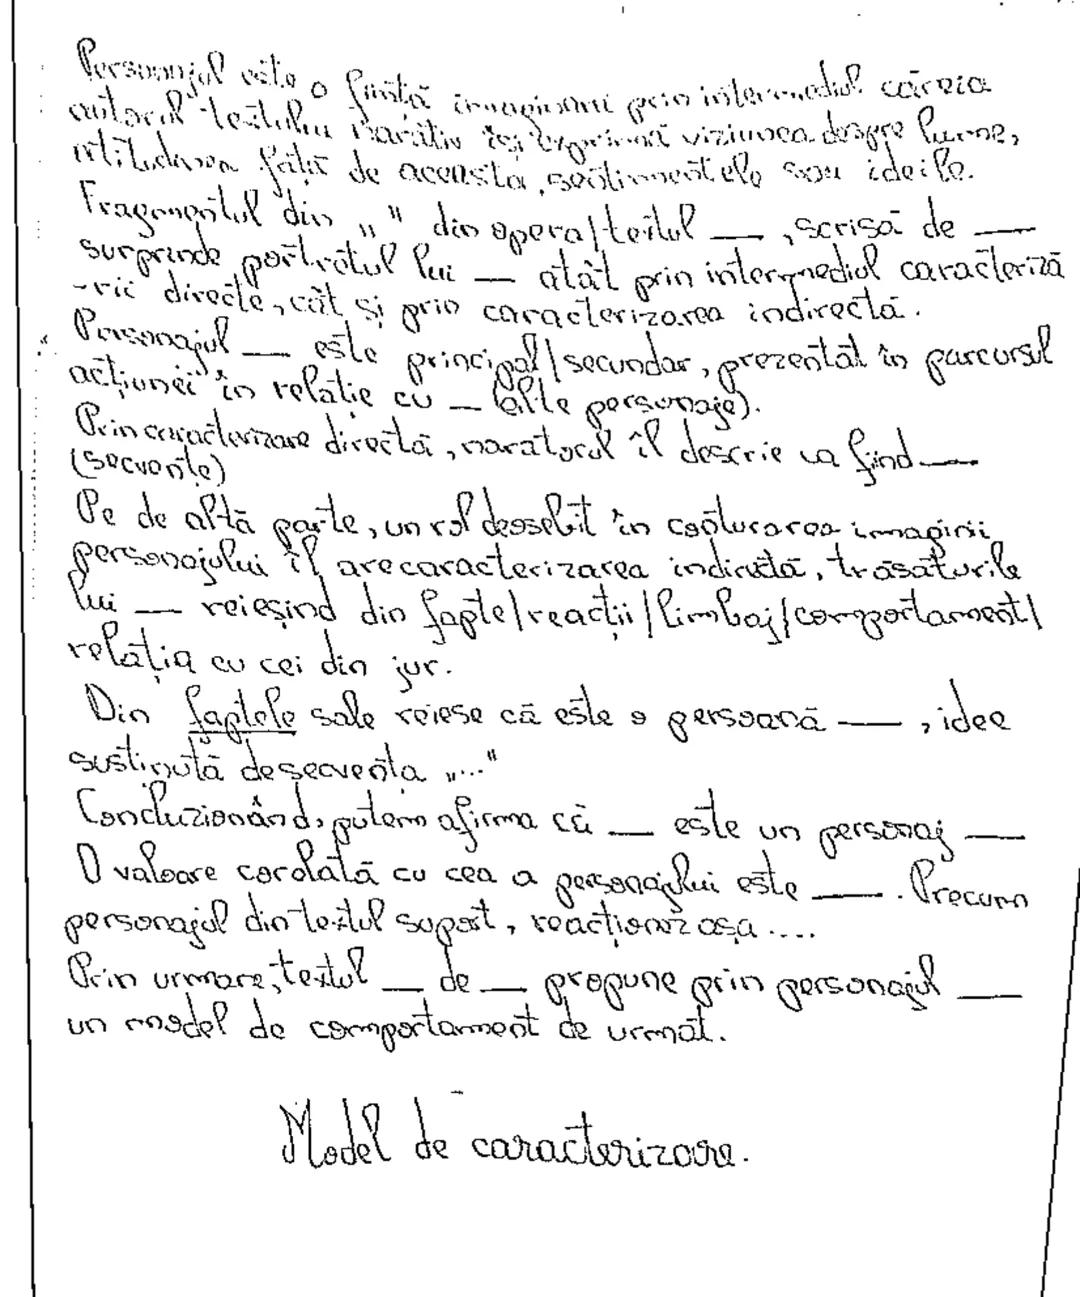 Personajul este o ființă imaginară prin intermediul căreia
autorul textului narativ își exprimă viziunea despre lume,
atitudinea față de aceasta, sentimentele sau ideile.
Fragmentul din „ " din opera/textul __, scrisă de __
surprinde portretul lui __ atât prin intermediul caracteriză
-rii directe, cât și prin caracterizarea indirectă.
Personajul __ este principal/secundar, prezentat în parcursul
acțiunei în relație cu __ (alte personaje).
Prin caracterizare directă, naratorul îl descrie ca fiind __
(secvențe)
Pe de altă parte, un rol deosebit în conturarea imaginii
personajului îl are caracterizarea indirectă, trăsăturile
lui __ reieșind din fapte/reacții/limbaj/comportament/
relația cu cei din jur.
Din faptele sale reiese că este o persoană __, idee
susținută de secvența „..."
Concluzionând, putem afirma că __ este un personaj __
O valoare corolată cu cea a personajului este __. Precum
personajul din textul suport, reacționez așa ....
Prin urmare, textul __ de __ propune prin personajul __
un model de comportament de urmat.
Model de caracterizare.